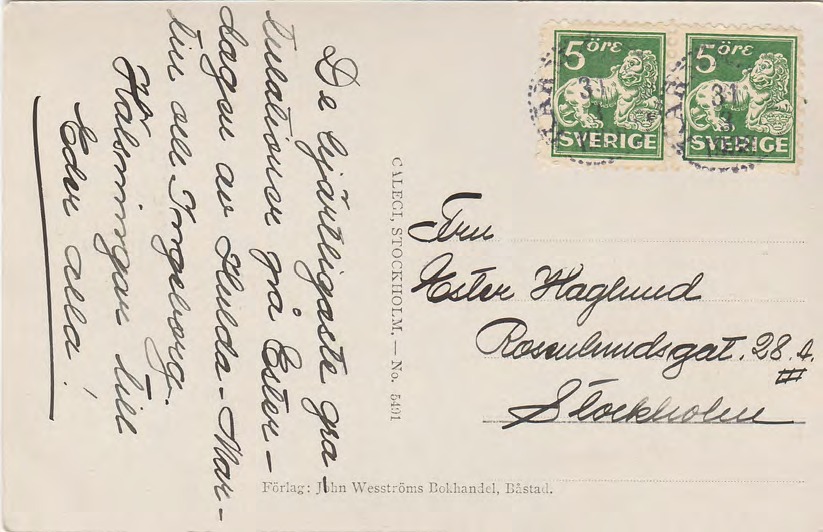 De hjärtligaste gra-
tulationer på Ester-
dagen av Hulda-Mar-
tin och Ingeborg.
Hälsningar till
Eder alla!
CALEGI, STOCKHOLM. — No. 5491
5 öre
SVERIGE
5 öre
SVERIGE
31
3
31
3
Fru
Ester Haglund
Rosenlundsgat. 28 A.
III
Stockholm
Förlag: John Wesströms Bokhandel, Båstad.